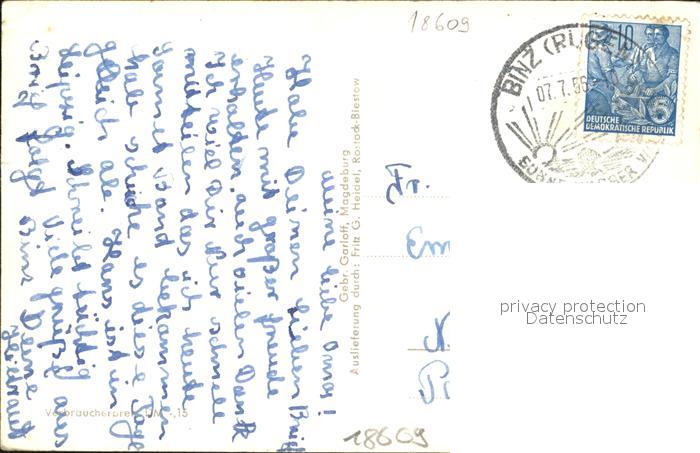 18609
BINZ (RÜGEN)
07.7.56
10
DEUTSCHE
DEMOKRATISCHE REPUBLIK
meine liebe Oma!
Habe Deinen lieben Brief
Heute mit großer Freude
erhalten, auch vielen Dank
Ich will Dir kur schnell
mitteilen das ich heute
Band bekommen
habe schicke es diese Tage
gleich ab. Hans ist in
Leipzig. Schreibt tüchtig
Viele grüße aus
Brief folgt Binz Deine
Gebr. Garloff, Magdeburg
Auslieferung durch: Fritz G. Heidel, Rostock-Biestow
Fr.
Em
privacy protection
Datenschutz
Verbraucherpreis DM -,15
18609